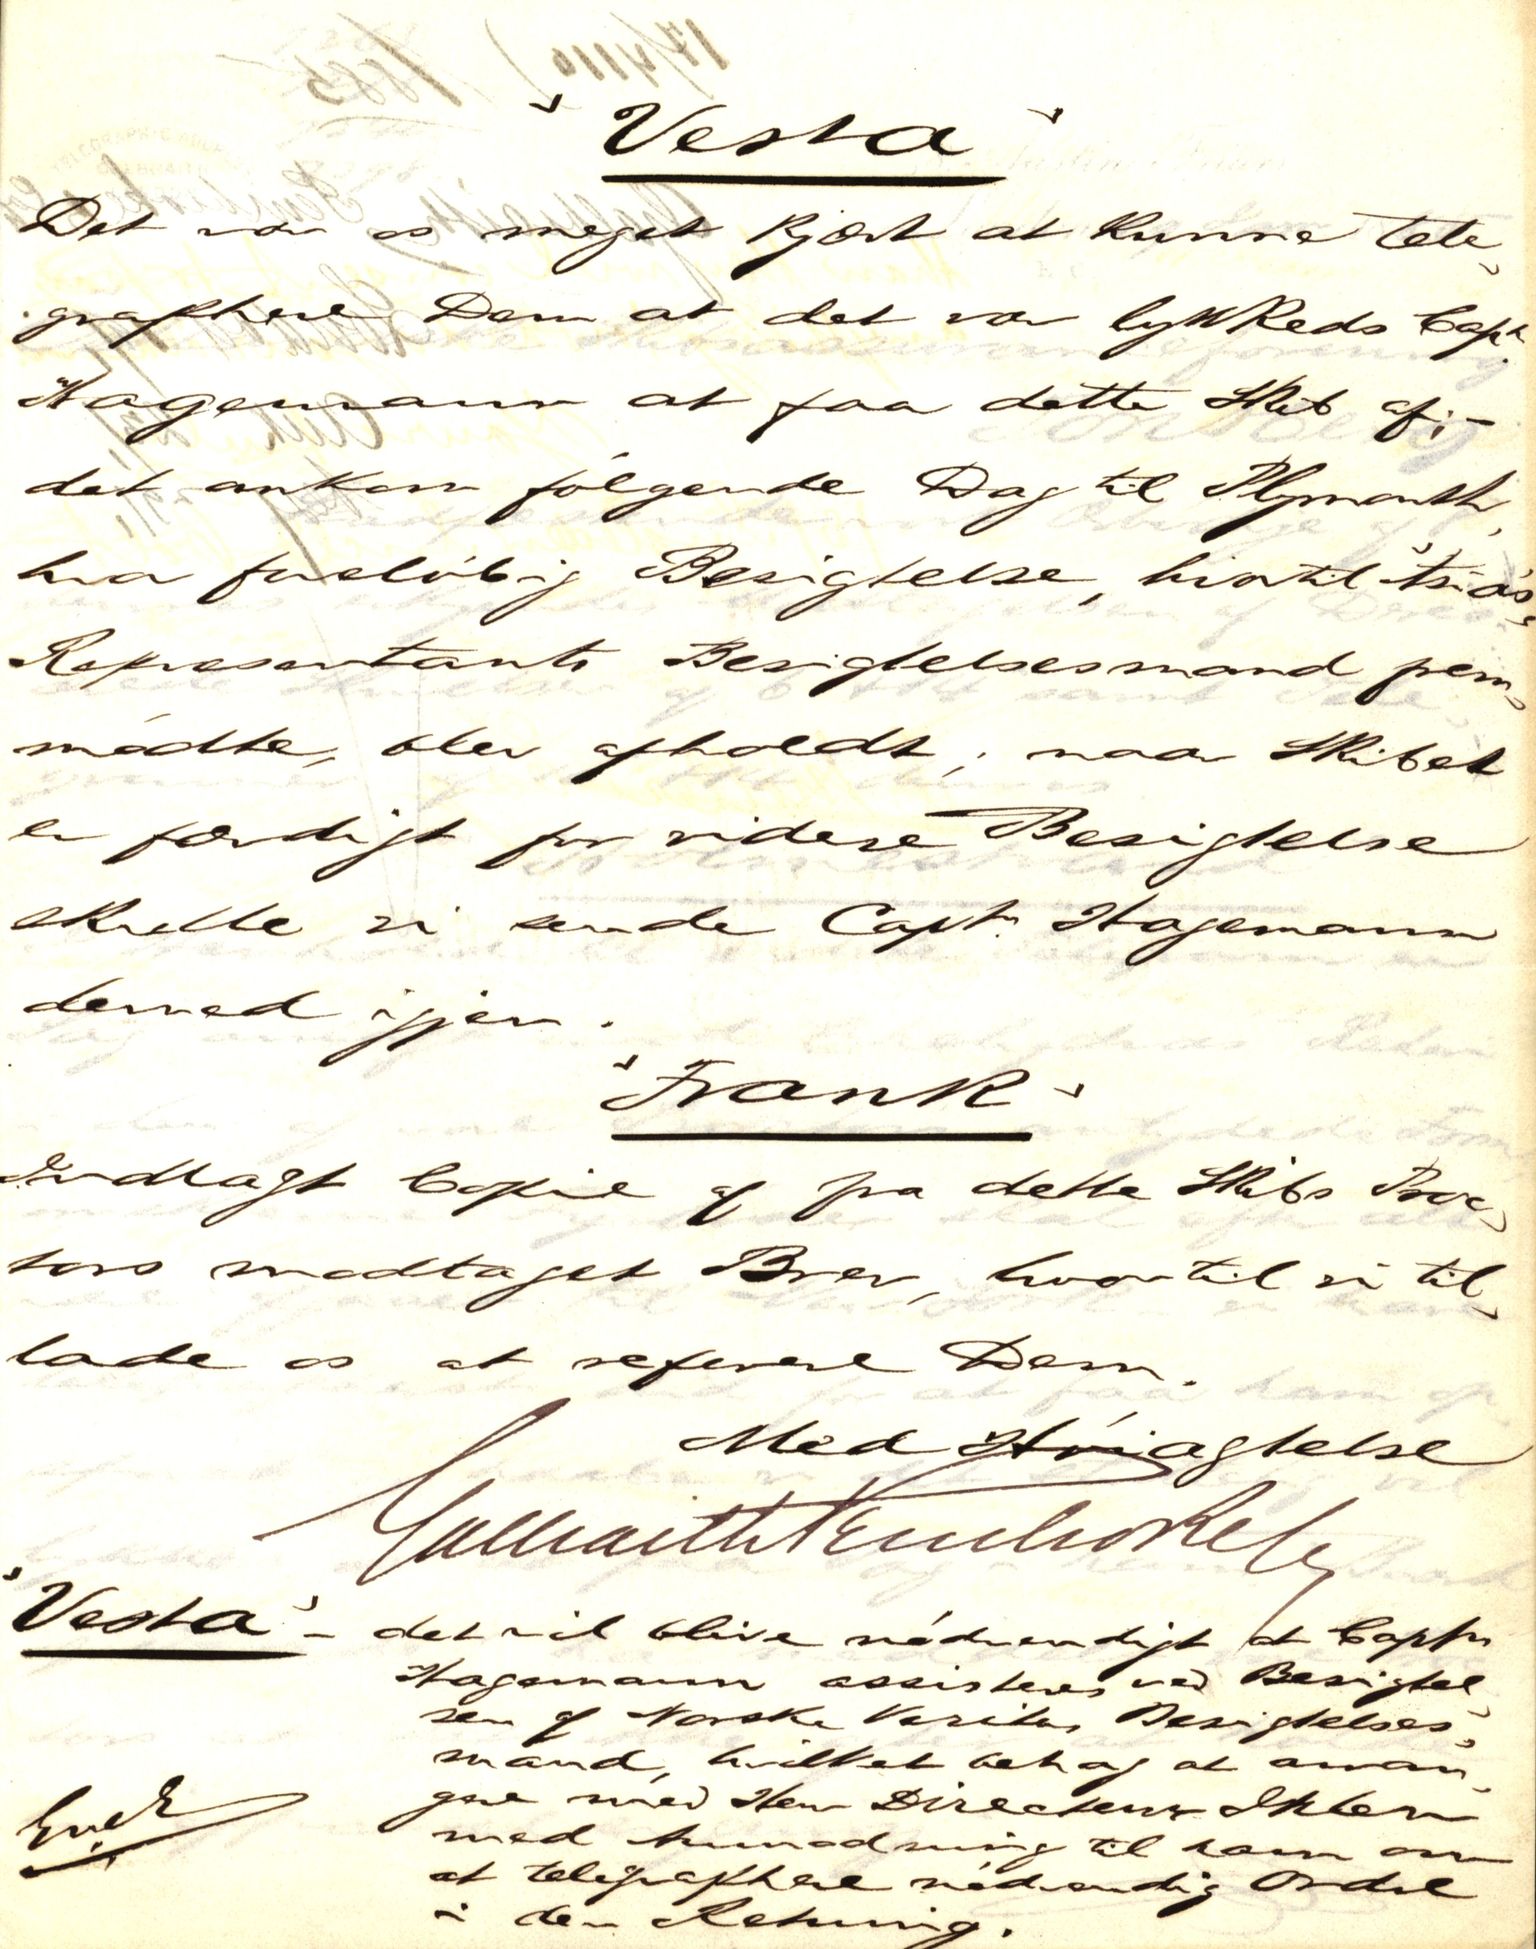 "Vesta"
Det var os meget kjært at kunne tele-
graphere Dem at det var lykkedes Captn
Hagemann at faa dette Skib af; -
det ankom følgende Dag til Plymouth,
hvor foreløbig Besigtelse, hvortil
Representants Besigtelsesmand frem-
mødte, blev afholdt; naar Skibet
er færdigt for videre Besigtelse
skulle vi sende Captn Hagemann
derned igjen.
"Frank"
Indlagt Copie af fra dette Skibs Proc-
tors modtaget Brev, hvortil vi til-
lade os at referere Dem.
Med Høiagtelse
Galbraith Pembroke & Co
"Vesta" - det vil blive nødvendigt at Captn
Hagemann assisteres ved Besigtel-
sen af Norske Veritas Besigtelses-
mand, hvilket behag at arran-
gere med Herr Directeur
med Anmodning til ham om
at telegraphere nødvendig Ordre
i den Retning.